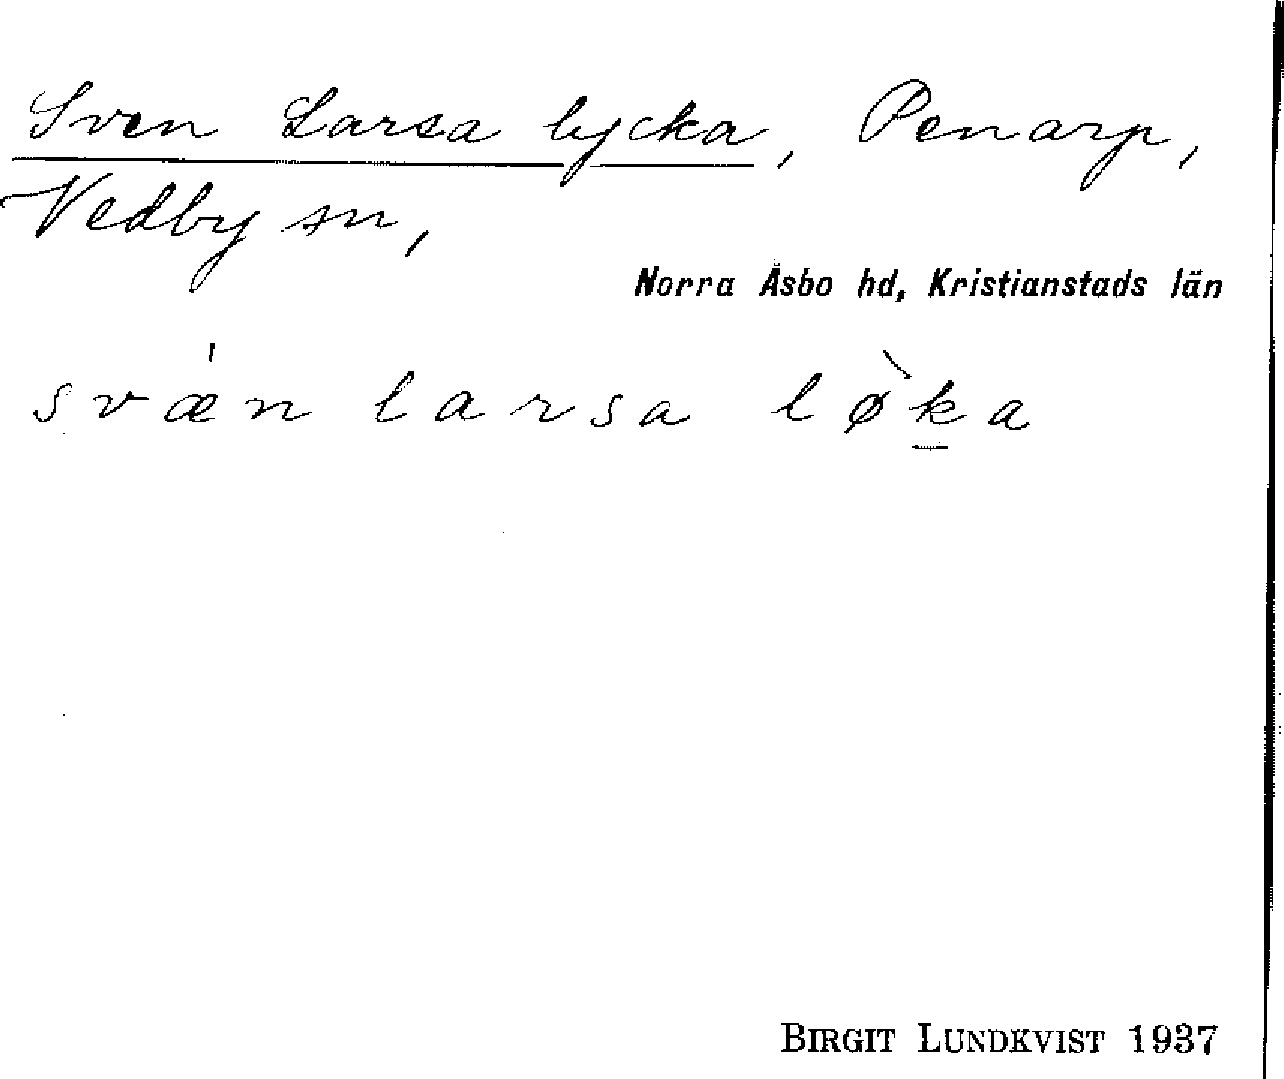 Sven Larsa lycka, Penarp,
Vedby sn,
Norra Åsbo hd, Kristianstads län
svæ̍n larsa lø̀k̲a
BIRGIT LUNDKVIST 1937